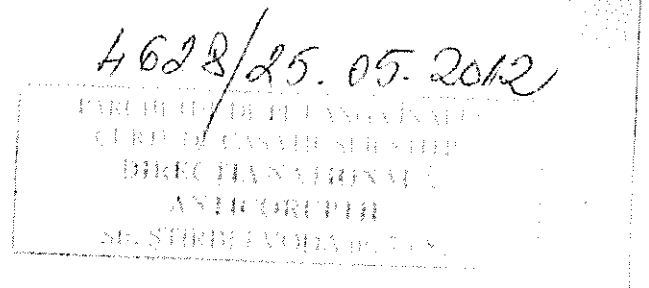 4628/25.05.2012
PARCHETUL DE PE LÂNGĂ ÎNALTA
CURTE DE CASAŢIE
DIRECŢIA NAŢIONALĂ
ANTICORUPŢIE
Str. ŞTIRBEI VODĂ nr.